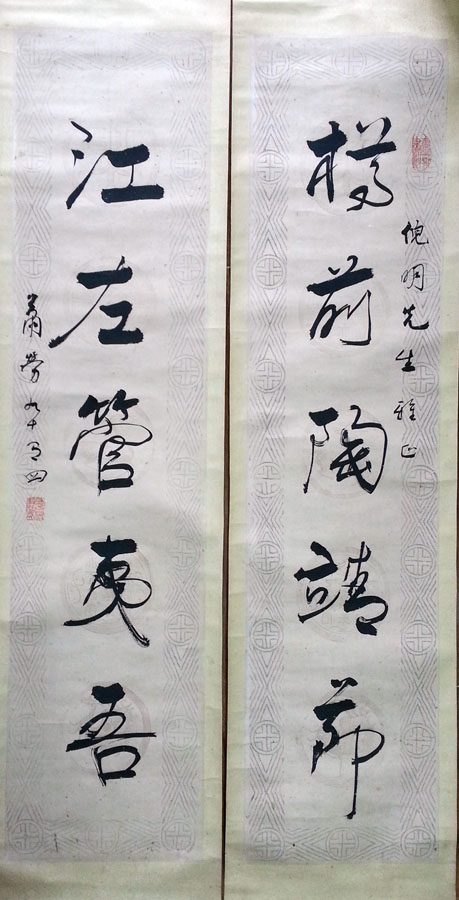 倪明先生雅正
樽前陶靖節
江左管夷吾
蕭勞九十有四